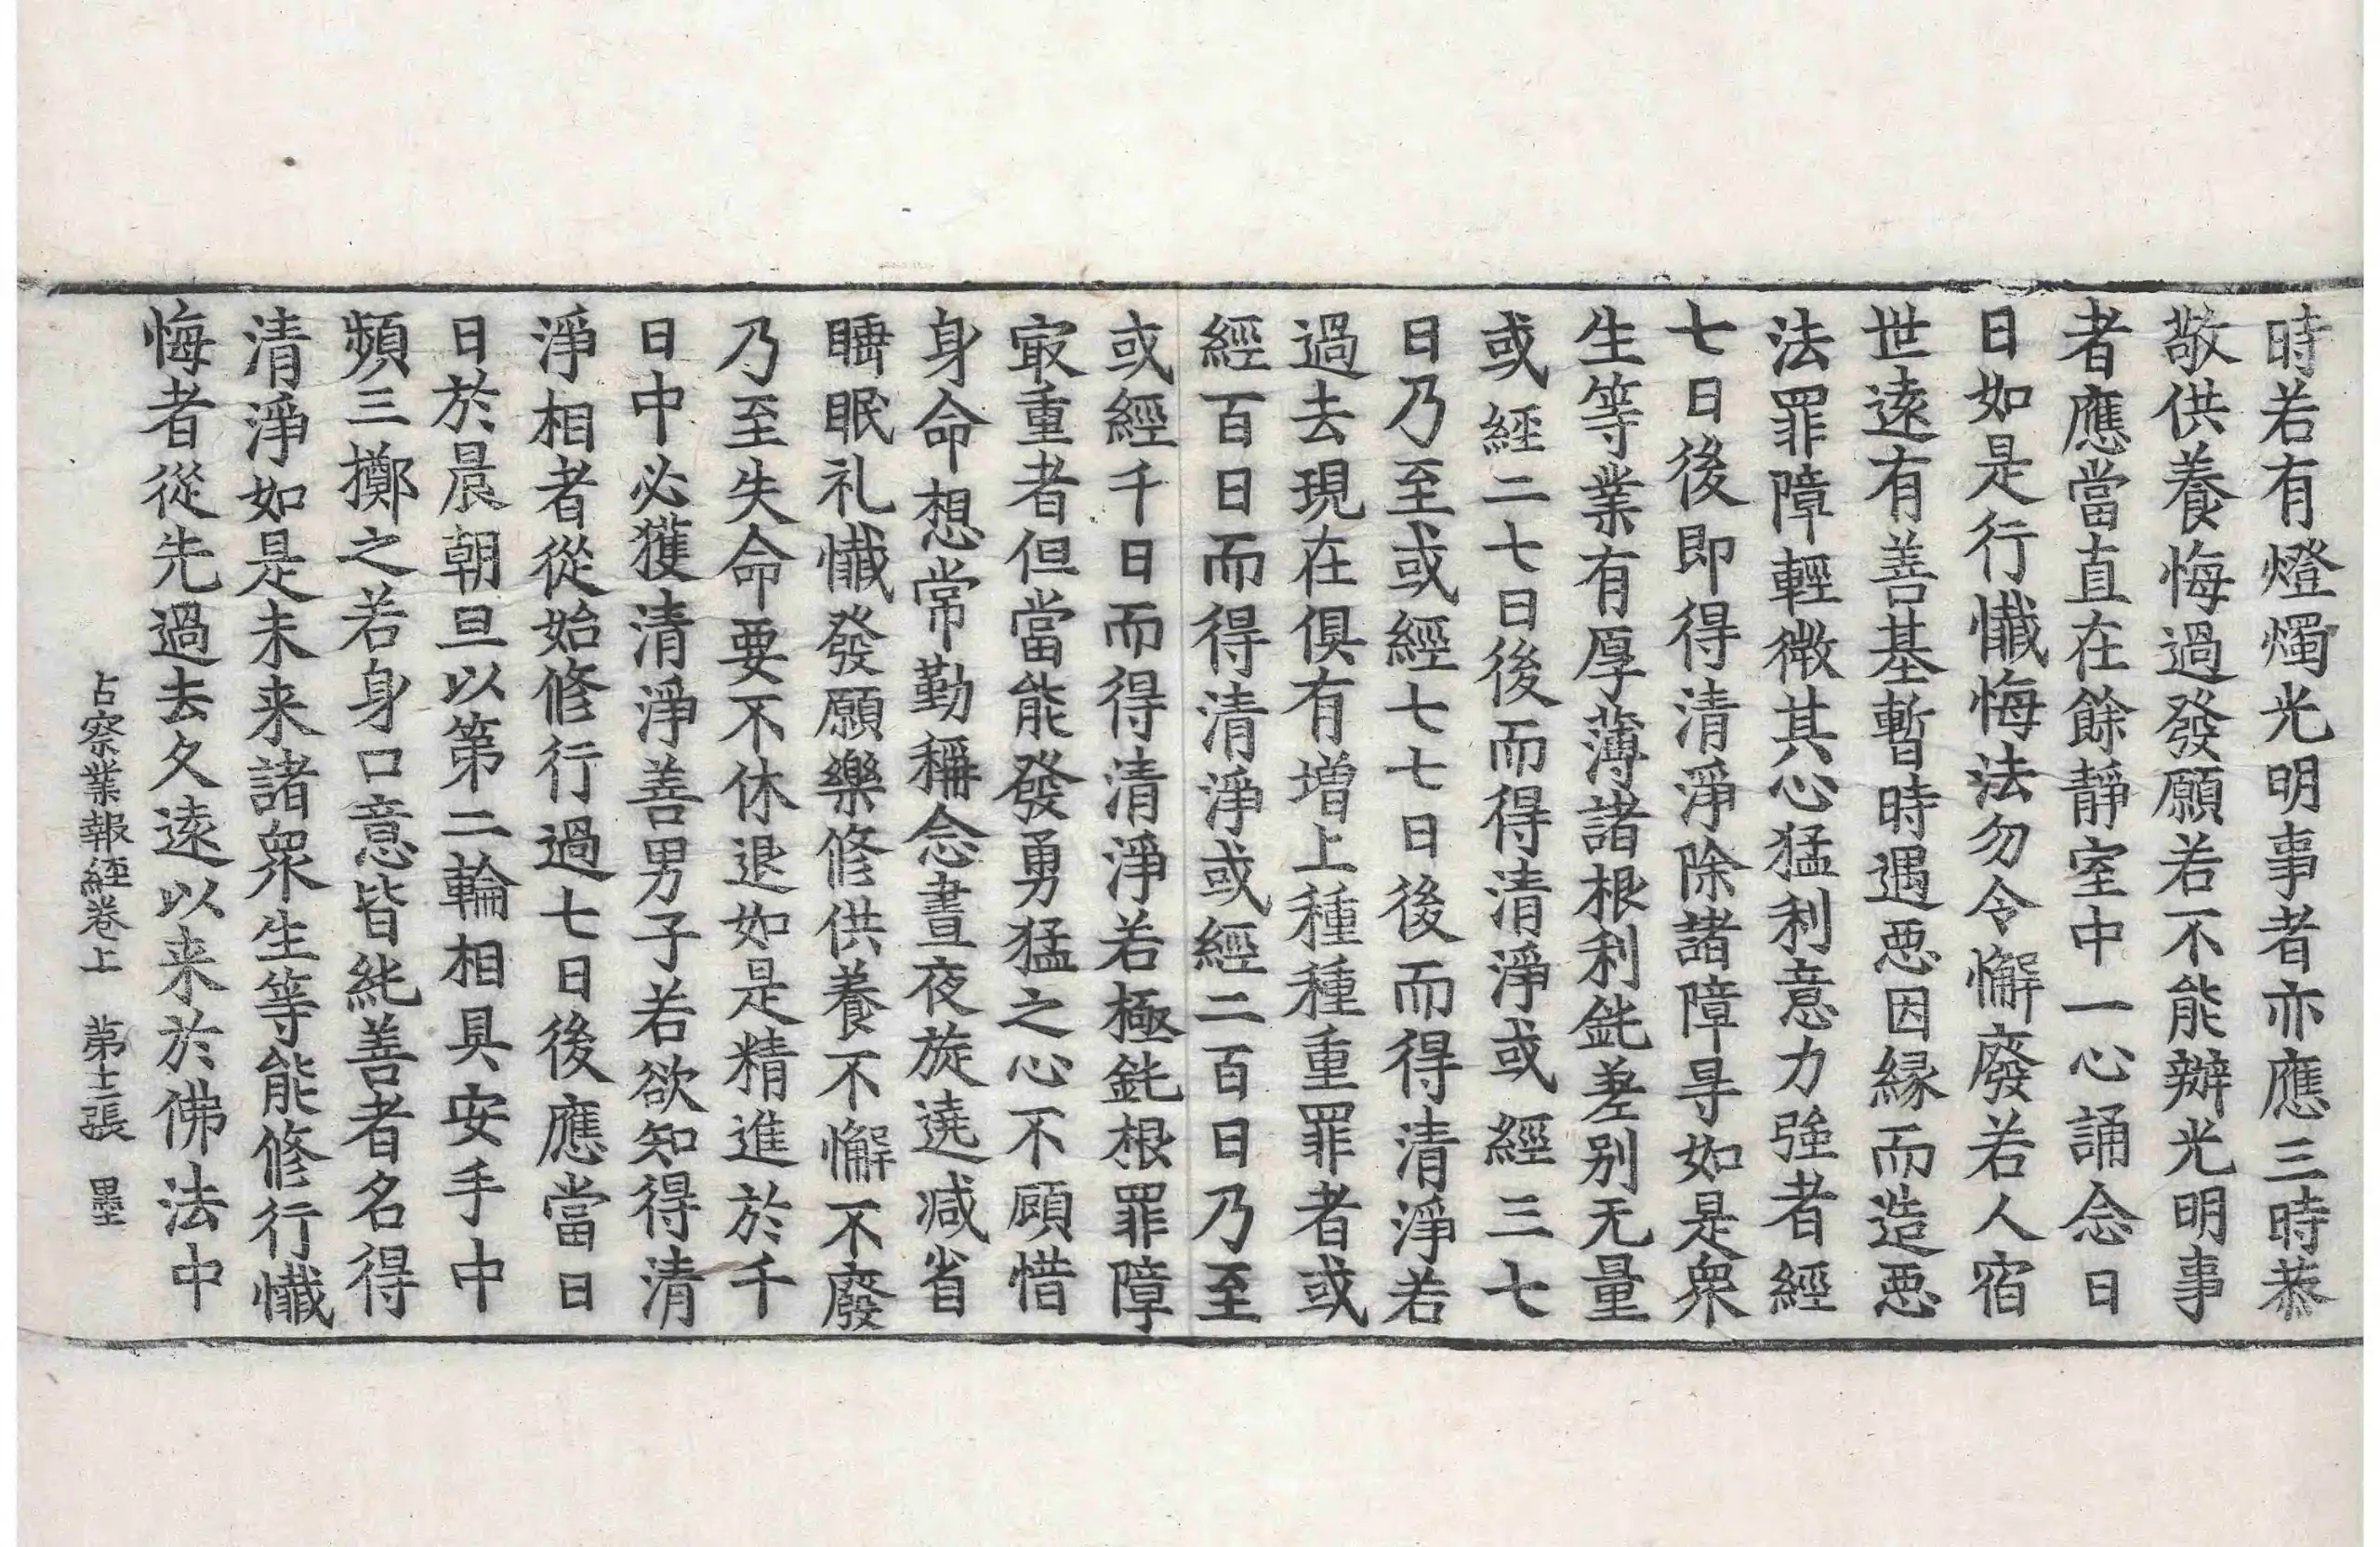 時若有燈燭光明事者亦應三時恭
敬供養悔過發願若不能辦光明事
者應當直在餘靜室中一心誦念日
日如是行懺悔法勿令懈廢若人宿
世遠有善基暫時遇惡因緣而造惡
法罪障輕微其心猛利意力強者經
七日後即得清淨除諸障㝵如是衆
生等業有厚薄諸根利鈍差別无量
或經二七日後而得清淨或經三七
日乃至或經七七日後而得清淨若
過去現在俱有增上種種重罪者或
經百日而得清淨或經二百日乃至
或經千日而得清淨若極鈍根罪障
㝡重者但當能發勇猛之心不顧惜
身命想常勤稱念晝夜旋遶減省
睡眠礼懺發願樂修供養不懈不廢
乃至失命要不休退如是精進於千
日中必獲清淨善男子若欲知得清
淨相者從始修行過七日後應當日
日於晨朝旦以第二輪相具安手中
頻三擲之若身口意皆純善者名得
清淨如是未来諸衆生等能修行懺
悔者從先過去久遠以来於佛法中
占察業報經卷上　第十三張　墨